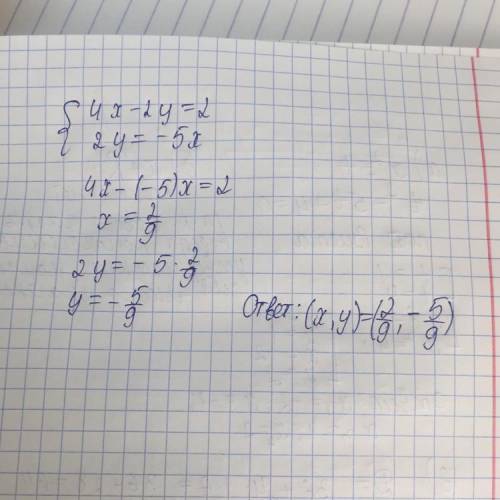 { 4x - 2y = 2
2y = -5x
4x - (-5)x = 2
x = 2/9
2y = -5 · 2/9
y = -5/9
Ответ: (x, y) = (2/9, -5/9)